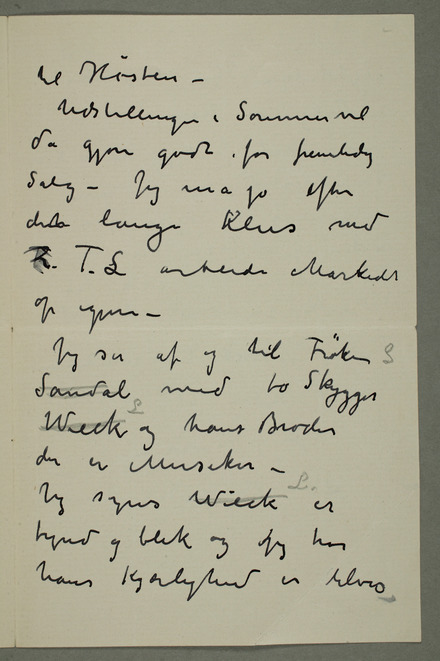 til Hösten –
Udstillinger i Sommer vil
da gjøre godt for fremtidig
Salg – Jeg må jo efter
dette lange Klus med
T. L arbeide Markedet
op igjen –
Jeg ser af og til Fröken S
Sandal med to Skygger
Wieck L og hans Broder
der er Musiker –
Jeg synes Wieck L. er
tynd og blek og
hans Kjærlighed er